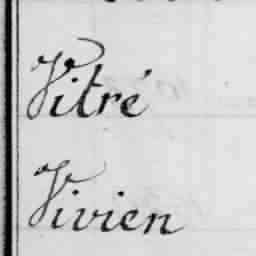 Vitré
Vivien